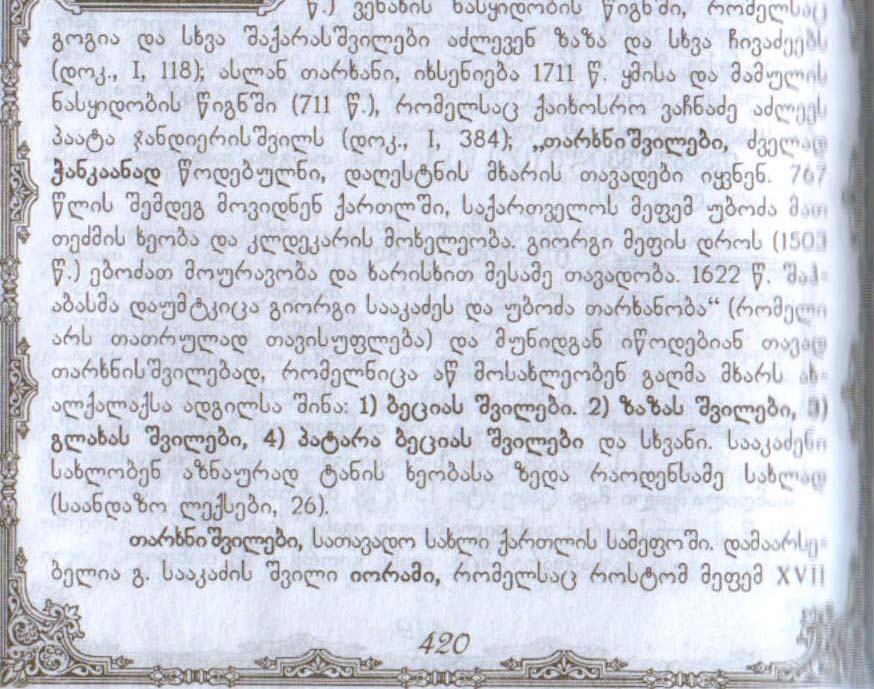 წ.) ვენახის ნასყიდობის წიგნში, რომელსაც
გოგია და სხვა შაქარასშვილები აძლევენ ზაზა და სხვა ჩივაძეებს
(დოკ., I, 118); ასლან თარხანი, იხსენიება 1711 წ. ყმისა და მამულის
ნასყიდობის წიგნში (711 წ.), რომელსაც ქაიხოსრო ვაჩნაძე აძლევს
პაატა ჯანდიერისშვილს (დოკ., I, 384); „თარხნიშვილები, ძველად
ჭანკაანად წოდებულნი, დაღესტნის მხარის თავადები იყვნენ. 767
წლის შემდეგ მოვიდნენ ქართლში, საქართველოს მეფემ უბოძა მათ
თეძმის ხეობა და კლდეკარის მოხელეობა. გიორგი მეფის დროს (1503
წ.) ებოძათ მოურავობა და ხარისხით მესამე თავადობა. 1622 წ. შაჰ-
აბასმა დაუმტკიცა გიორგი სააკაძეს და უბოძა თარხანობა“ (რომელი
არს თათრულად თავისუფლება) და მუნიდგან იწოდებიან თავად
თარხნისშვილებად, რომელნიცა აწ მოსახლეობენ გაღმა მხარს ახ-
ალქალაქსა ადგილსა შინა: 1) ბეციას შვილები. 2) ზაზას შვილები, 3)
გლახას შვილები, 4) პატარა ბეციას შვილები და სხვანი. სააკაძენი
სახლობენ აზნაურად ტანის ხეობასა ზედა რაოდენსამე სახლად
(საანდაზო ლექსები, 26).
თარხნიშვილები, სათავადო სახლი ქართლის სამეფოში. დამაარსე-
ბელია გ. სააკაძის შვილი იორამი, რომელსაც როსტომ მეფემ XVII
420